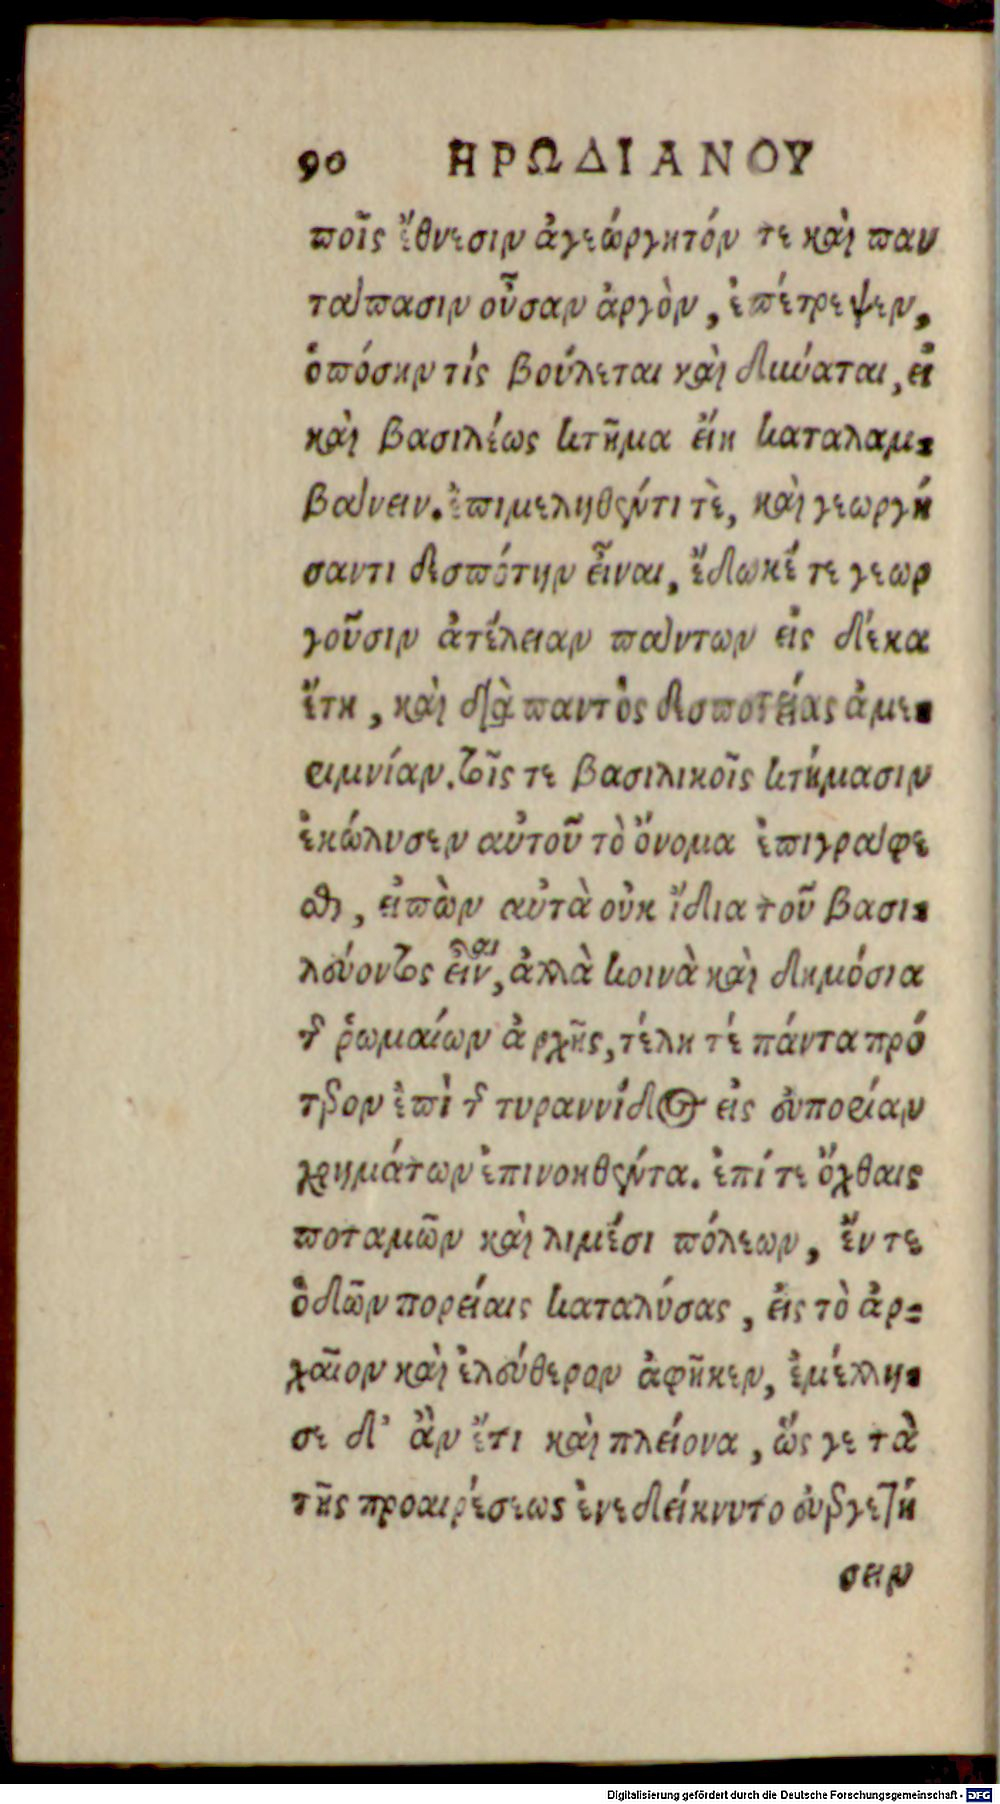 90 ΗΡΩΔΙΑΝΟΥ
ποῖς ἔθνεσιν ἀγεώργητόν τε καὶ παν
τάπασιν οὖσαν ἀργὸν, ἐπέτρεψεν,
ὁπόσην τίς βούλεται καὶ δύναται, εἰ
καὶ βασιλέως κτῆμα εἴη καταλαμ-
βάνειν. ἐπιμεληθέντι τὲ, καὶ γεωργή
σαντι δεσπότην εἶναι, ἔδωκέ τε γεωρ
γοῦσιν ἀτέλειαν πάντων εἰς δέκα
ἔτη, καὶ διὰ παντὸς δεσποτείας ἀμε-
ριμνίαν. τοῖς τε βασιλικοῖς κτήμασιν
ἐκώλυσεν αὐτοῦ τὸ ὄνομα ἐπιγράφε
σθαι, εἰπὼν αὐτὰ οὐκ ἴδια τοῦ βασι-
λεύοντος εἶναι, ἀλλὰ κοινὰ καὶ δημόσια
τῆς ῥωμαίων ἀρχῆς, τέλη τέ πάντα πρό
τερον ἐπὶ τῆς τυραννίδος εἰς εὐπορίαν
χρημάτων ἐπινοηθέντα. ἐπί τε ὄχθαις
ποταμῶν καὶ λιμέσι πόλεων, ἔν τε
ὁδῶν πορείαις καταλύσας, εἰς τὸ ἀρ-
χαῖον καὶ ἐλεύθερον ἀφῆκεν, ἐμέλλη-
σε δ' ἂν ἔτι καὶ πλείονα, ὥς γε τὰ
τῆς προαιρέσεως ἐνεδείκνυτο εὐεργετή
σειν
Digitalisierung gefördert durch die Deutsche Forschungsgemeinschaft - DFG